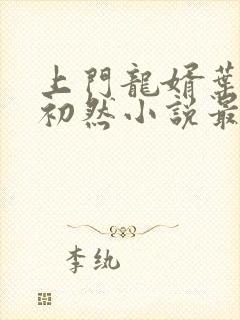 上門龍婿葉
初然小説最
李紈